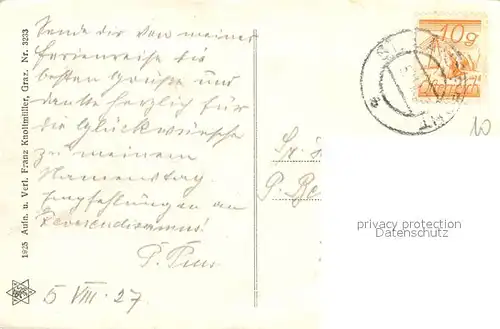 Sende dir von meiner
Ferienreise die
besten Grüße und
danke herzlich für
die Glückwünsche
zu meinem
Namenstag.
Empfehlungen an
Reverendissimus!
P. Pius
5 VIII. 27
1925 Aufn. u. Verl. Franz Knollmüller, Graz. Nr. 3233
10g
Sr.
P. Be
privacy protection
Datenschutz
10